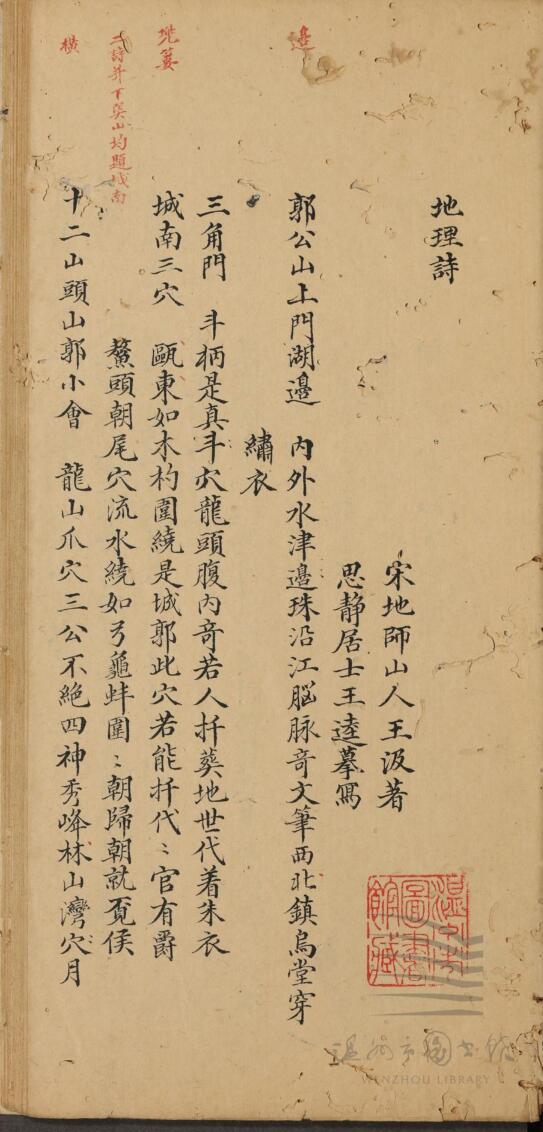 地理詩
宋地師山人王汲著
思静居士王逵摹寫
郭公山上門湖邉　内外水津邉珠沿江脳脉竒文筆西北鎮烏堂穿
繡衣
三角門　斗柄是真斗穴龍頭腹内竒若人扦葬地世代着朱衣
城南三穴　甌東如木杓圍繞是城郭此穴若能扦代〻官有爵
鰲頭朝尾穴流水繞如弓龜蚌圍〻朝歸朝就覔侯
十二山頭山郭小會　龍山爪穴三公不絶四神秀峰林山灣穴月
邉
兠蔞
二詩并下葉山均題城南
橫
温州市圖書館藏
温州市图书馆
WENZHOU LIBRARY